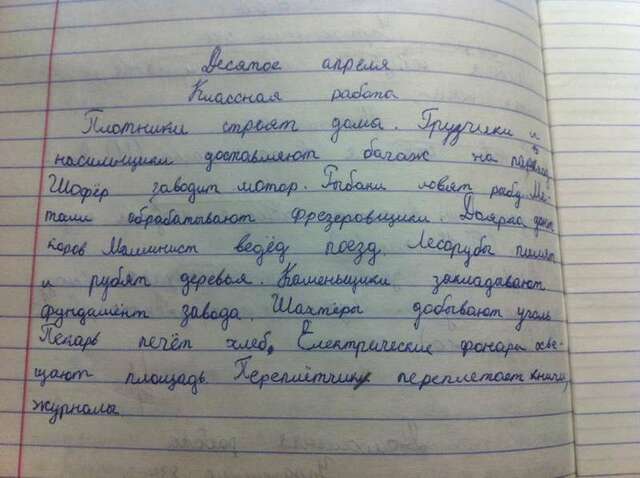 Десятое апреля
Классная работа
Плотники строят дома. Грузчики и
насильщики доставляют багаж на
Шофёр заводит мотор. Рыбаки ловят рыбу. Ме-
тали обрабатывают фрезеровщики. Доярка
коров Машинист ведёд поезд. Лесорубы пилят
и рубят деревья. Каменьщики закладывают
фундамент завода. Шахтёры добывают уголь
Пекарь печёт хлеб. Електрические фонари
щают площадь. Переплётчик переплетает книги,
журналы.